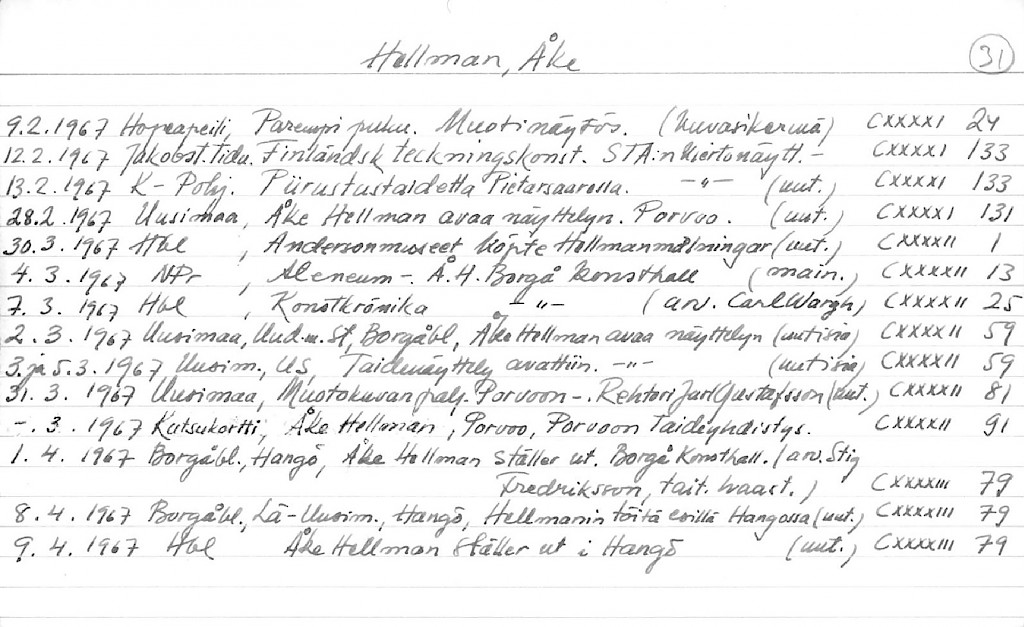 Hellman, Åke 31
9.2.1967 Hopeapeili, Parempi puku. Muotinäytös. (kuvasikermä) CXXXXI 24
12.2.1967 Jakobst.tidn. Finländsk teckningskonst. STA:n kiertonäytt. - CXXXXI 133
13.2.1967 K-Pohj. Piirustustaidetta Pietarsaaressa. -"- (uut.) CXXXXI 133
28.2.1967 Uusimaa, Åke Hellman avaa näyttelyn. Porvoo. (uut.) CXXXXI 131
30.3.1967 Hbl, Andersonmuseet köpte Hellmanmålningar (uut.) CXXXXII 1
4.3.1967 NPr, Ateneum - Å.H. Borgå konsthall (main.) CXXXXII 13
7.3.1967 Hbl, Konstkrönika -"- (arv. Carl Wargh) CXXXXII 25
2.3.1967 Uusimaa, Uud.m. St, Borgåbl, Åke Hellman avaa näyttelyn (uutisia) CXXXXII 59
3.ja 5.3.1967 Uusim., US, Taidenäyttely avattiin. -"- (uutisia) CXXXXII 59
31.3.1967 Uusimaa, Muotokuvanpalj. Porvoon -. Rehtori Jarl Gustafsson (uut.) CXXXXII 81
-.3.1967 Kutsukortti, Åke Hellman, Porvoo, Porvoon Taideyhdistys. CXXXXII 91
1.4.1967 Borgåbl., Hangö, Åke Hellman ställer ut. Borgå Konsthall. (arv. Stig
Fredriksson, tait. haast.) CXXXXIII 79
8.4.1967 Borgåbl., Lä-Uusim., Hangö, Hellmanin töitä esillä Hangossa (uut.) CXXXXIII 79
9.4.1967 Hbl Åke Hellman ställer ut i Hangö (uut.) CXXXXIII 79